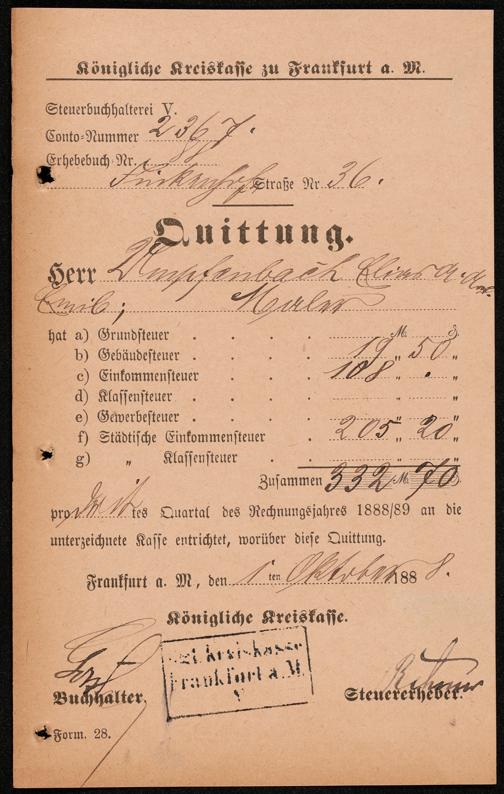 Königliche Kreiskasse zu Frankfurt a. M.
Steuerbuchhalterei V.
Conto-Nummer 2367.
Erhebebuch-Nr.
Straße Nr. 36.
Quittung.
Herr
Emil; Maler
M. ₰.
hat a) Grundsteuer
b) Gebäudesteuer 19 " 50 "
c) Einkommensteuer 108 " . "
d) Klassensteuer " "
e) Gewerbesteuer " "
f) Städtische Einkommensteuer 205 " 20 "
g) " Klassensteuer " "
Zusammen 332 M. 70 ₰.
pro tes Quartal des Rechnungsjahres 1888/89 an die
unterzeichnete Kasse entrichtet, worüber diese Quittung.
Frankfurt a. M., den 1 ten Oktober 1888.
Königliche Kreiskasse.
Kgl. Kreiskasse
Frankfurt a. M.
V
Buchhalter. Steuererheber.
Form. 28.